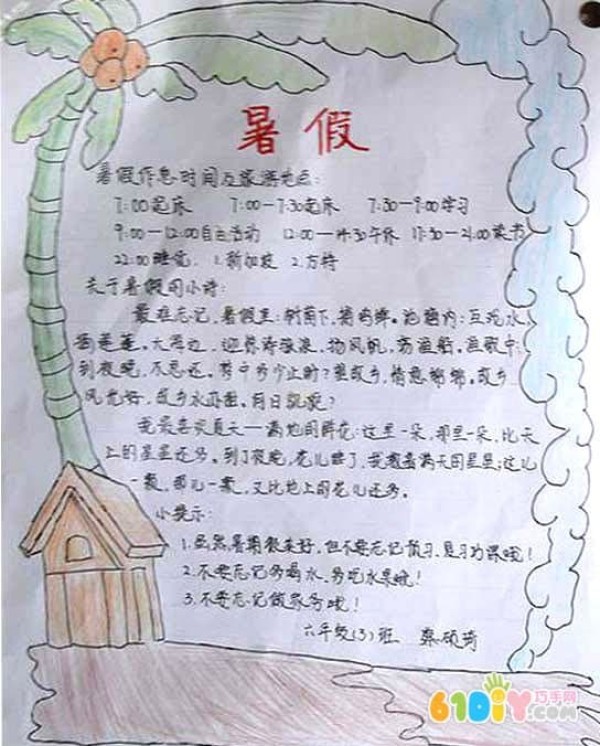 暑假
暑假作息时间及旅游地点:
7:00起床 7:00—7:30起床 7:30—9:00学习
9:00—12:00自主活动 12:00—14:30午休 17:30—21:00读书
22:00睡觉. 1.新加坡 2.方特
关于暑假的小诗:
最难忘记,暑假里:树荫下,捕鸣蝉。池塘内:互戏水,
采莲蓬。大海边,迎惊涛骇浪,扬风帆,荡渔船。渔歌中,
到夜晚,不思还。梦中多少止时?里故乡,情意绵绵。故乡
风光好,故乡水
我最喜欢夏天——满地的鲜花:这里一朵,那里一朵,比天
上的星星还多。到了夜晚,花儿睡了,我数着满天的星星:这儿
一颗,那儿一颗,又比地上的花儿还多。
小提示:
1.虽然暑期很美好,但不要忘记预习、复习功课哦!
2.不要忘记多喝水,多吃水果哦!
3.不要忘记做家务哦!
六年级(3)班 蔡硕琦
61DIY巧手网
.com